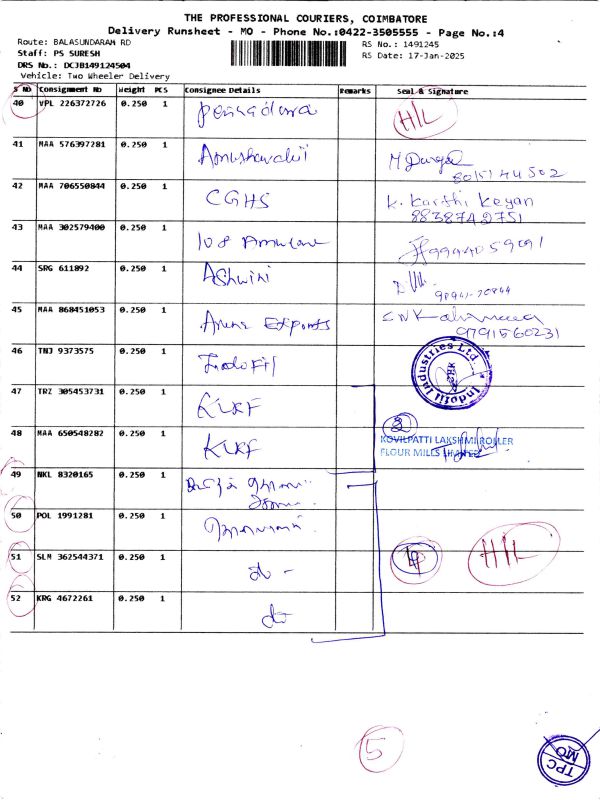 THE PROFESSIONAL COURIERS, COIMBATORE
Delivery Runsheet - MO - Phone No.:0422-3505555 - Page No.:4
Route: BALASUNDARAM RD
RS No.: 1491245
Staff: PS SURESH
RS Date: 17-Jan-2025
DRS No.: DCJB149124504
Vehicle: Two Wheeler Delivery
S NO Consignment No Weight PCS Consignee Details Remarks Seal & Signature
40 VPL 226372726 0.250 1 H/L
41 MAA 576397281 0.250 1 M Durga
42 MAA 706550844 0.250 1 CGHS K. Karthi Keyan
8838742751
43 MAA 302579400 0.250 1 108 9994059091
44 SRG 611892 0.250 1 Ashwini
45 MAA 868451053 0.250 1 Exports
9791560231
46 TNJ 9373575 0.250 1 Indofil Indofil Industries Ltd.
47 TRZ 305453731 0.250 1 KLRF
48 MAA 650548282 0.250 1 KLRF 2
KOVILPATTI LAKSHMI ROLLER
FLOUR MILLS LIMITED
49 NKL 8320165 0.250 1
50 POL 1991281 0.250 1
51 SLM 362544371 0.250 1 do - 4 H/L
52 KRG 4672261 0.250 1 do
5
TPC
MO